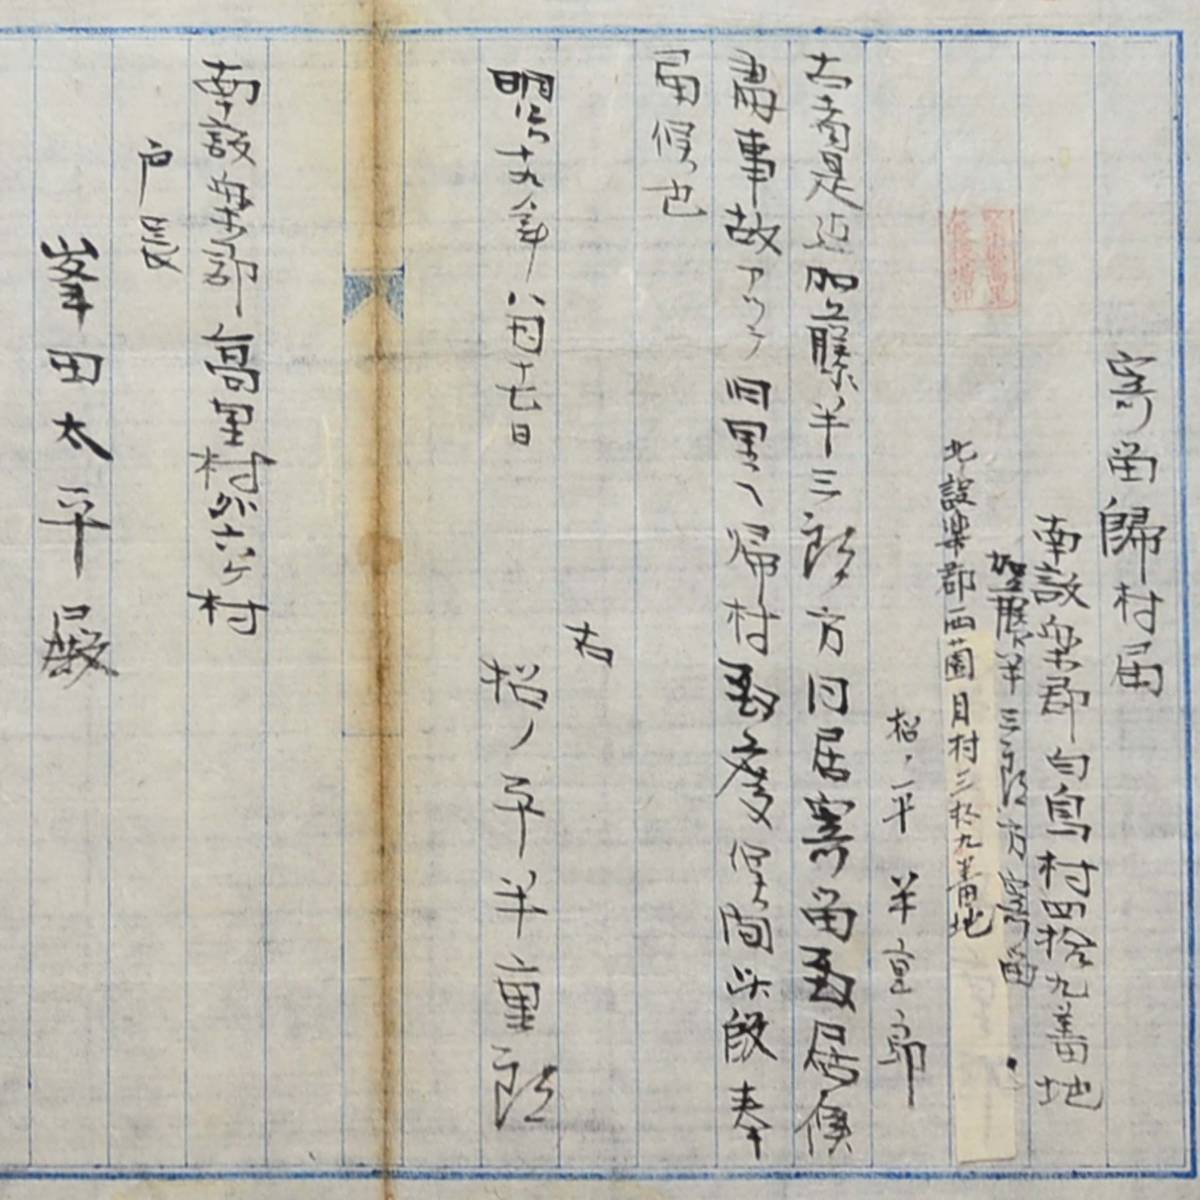 寄留帰村届
南設楽郡白鳥村四拾九番地
加藤半三郎方寄留
北設楽郡西薗目村三拾九番地
松ノ平半重郎
右者是迄加藤半三郎方同居寄留致居候
処事故アツテ旧里ヘ帰村致度候間此段奉
届候也
右
松ノ平半重郎
明治十九年八月十七日
南設楽郡高里村外六ヶ村
戸長
峯田太平殿